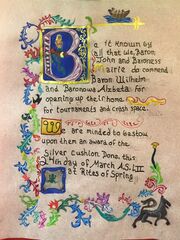 Be it known by
all that we, Baron
John and Baroness
do commend
Baron Wilhelm
and Baronowa Alzbeta for
opening up their home
for tournaments and crash space.
We are minded to bestow
upon them an award of the
Silver Cushion. Done this
4th day of March A.S. LII
at Rites of Spring